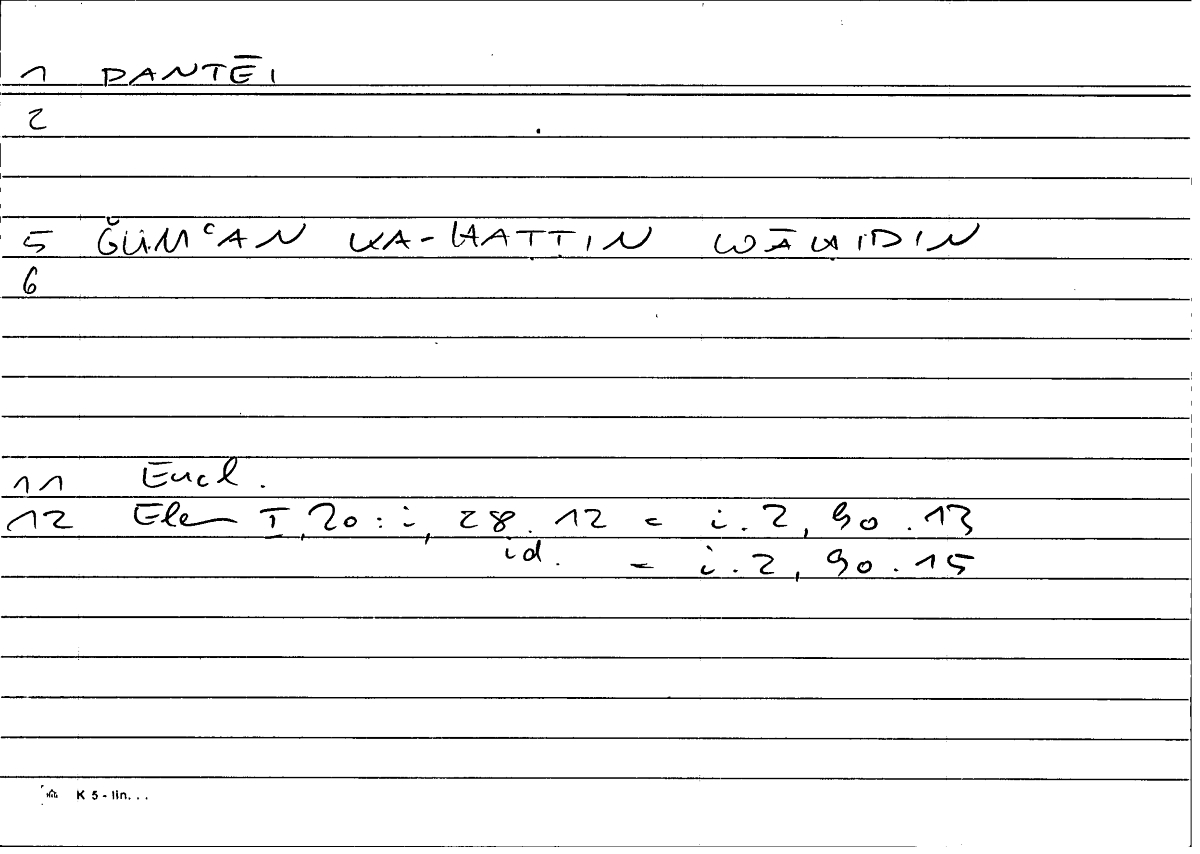 1 PANTĒI
2
5 ǦUMʿAN KA-ḪAṬṬIN WĀḤIDIN
6
11 Eucl.
12 Elem I,20 : i, 28.12 = i.2, 90.13
id. = i.2, 90.15
K 5 - lin. . .